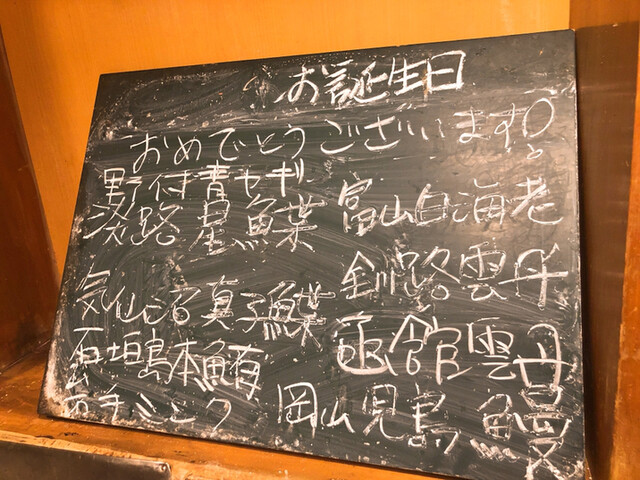 お誕生日
おめでとうございます!
野付青ヤギ
淡路星鰈
富山白海老
釧路雲丹
気仙沼真子鰈
函館雲丹
石垣島本鮪
カチミンク
岡山児島鰻